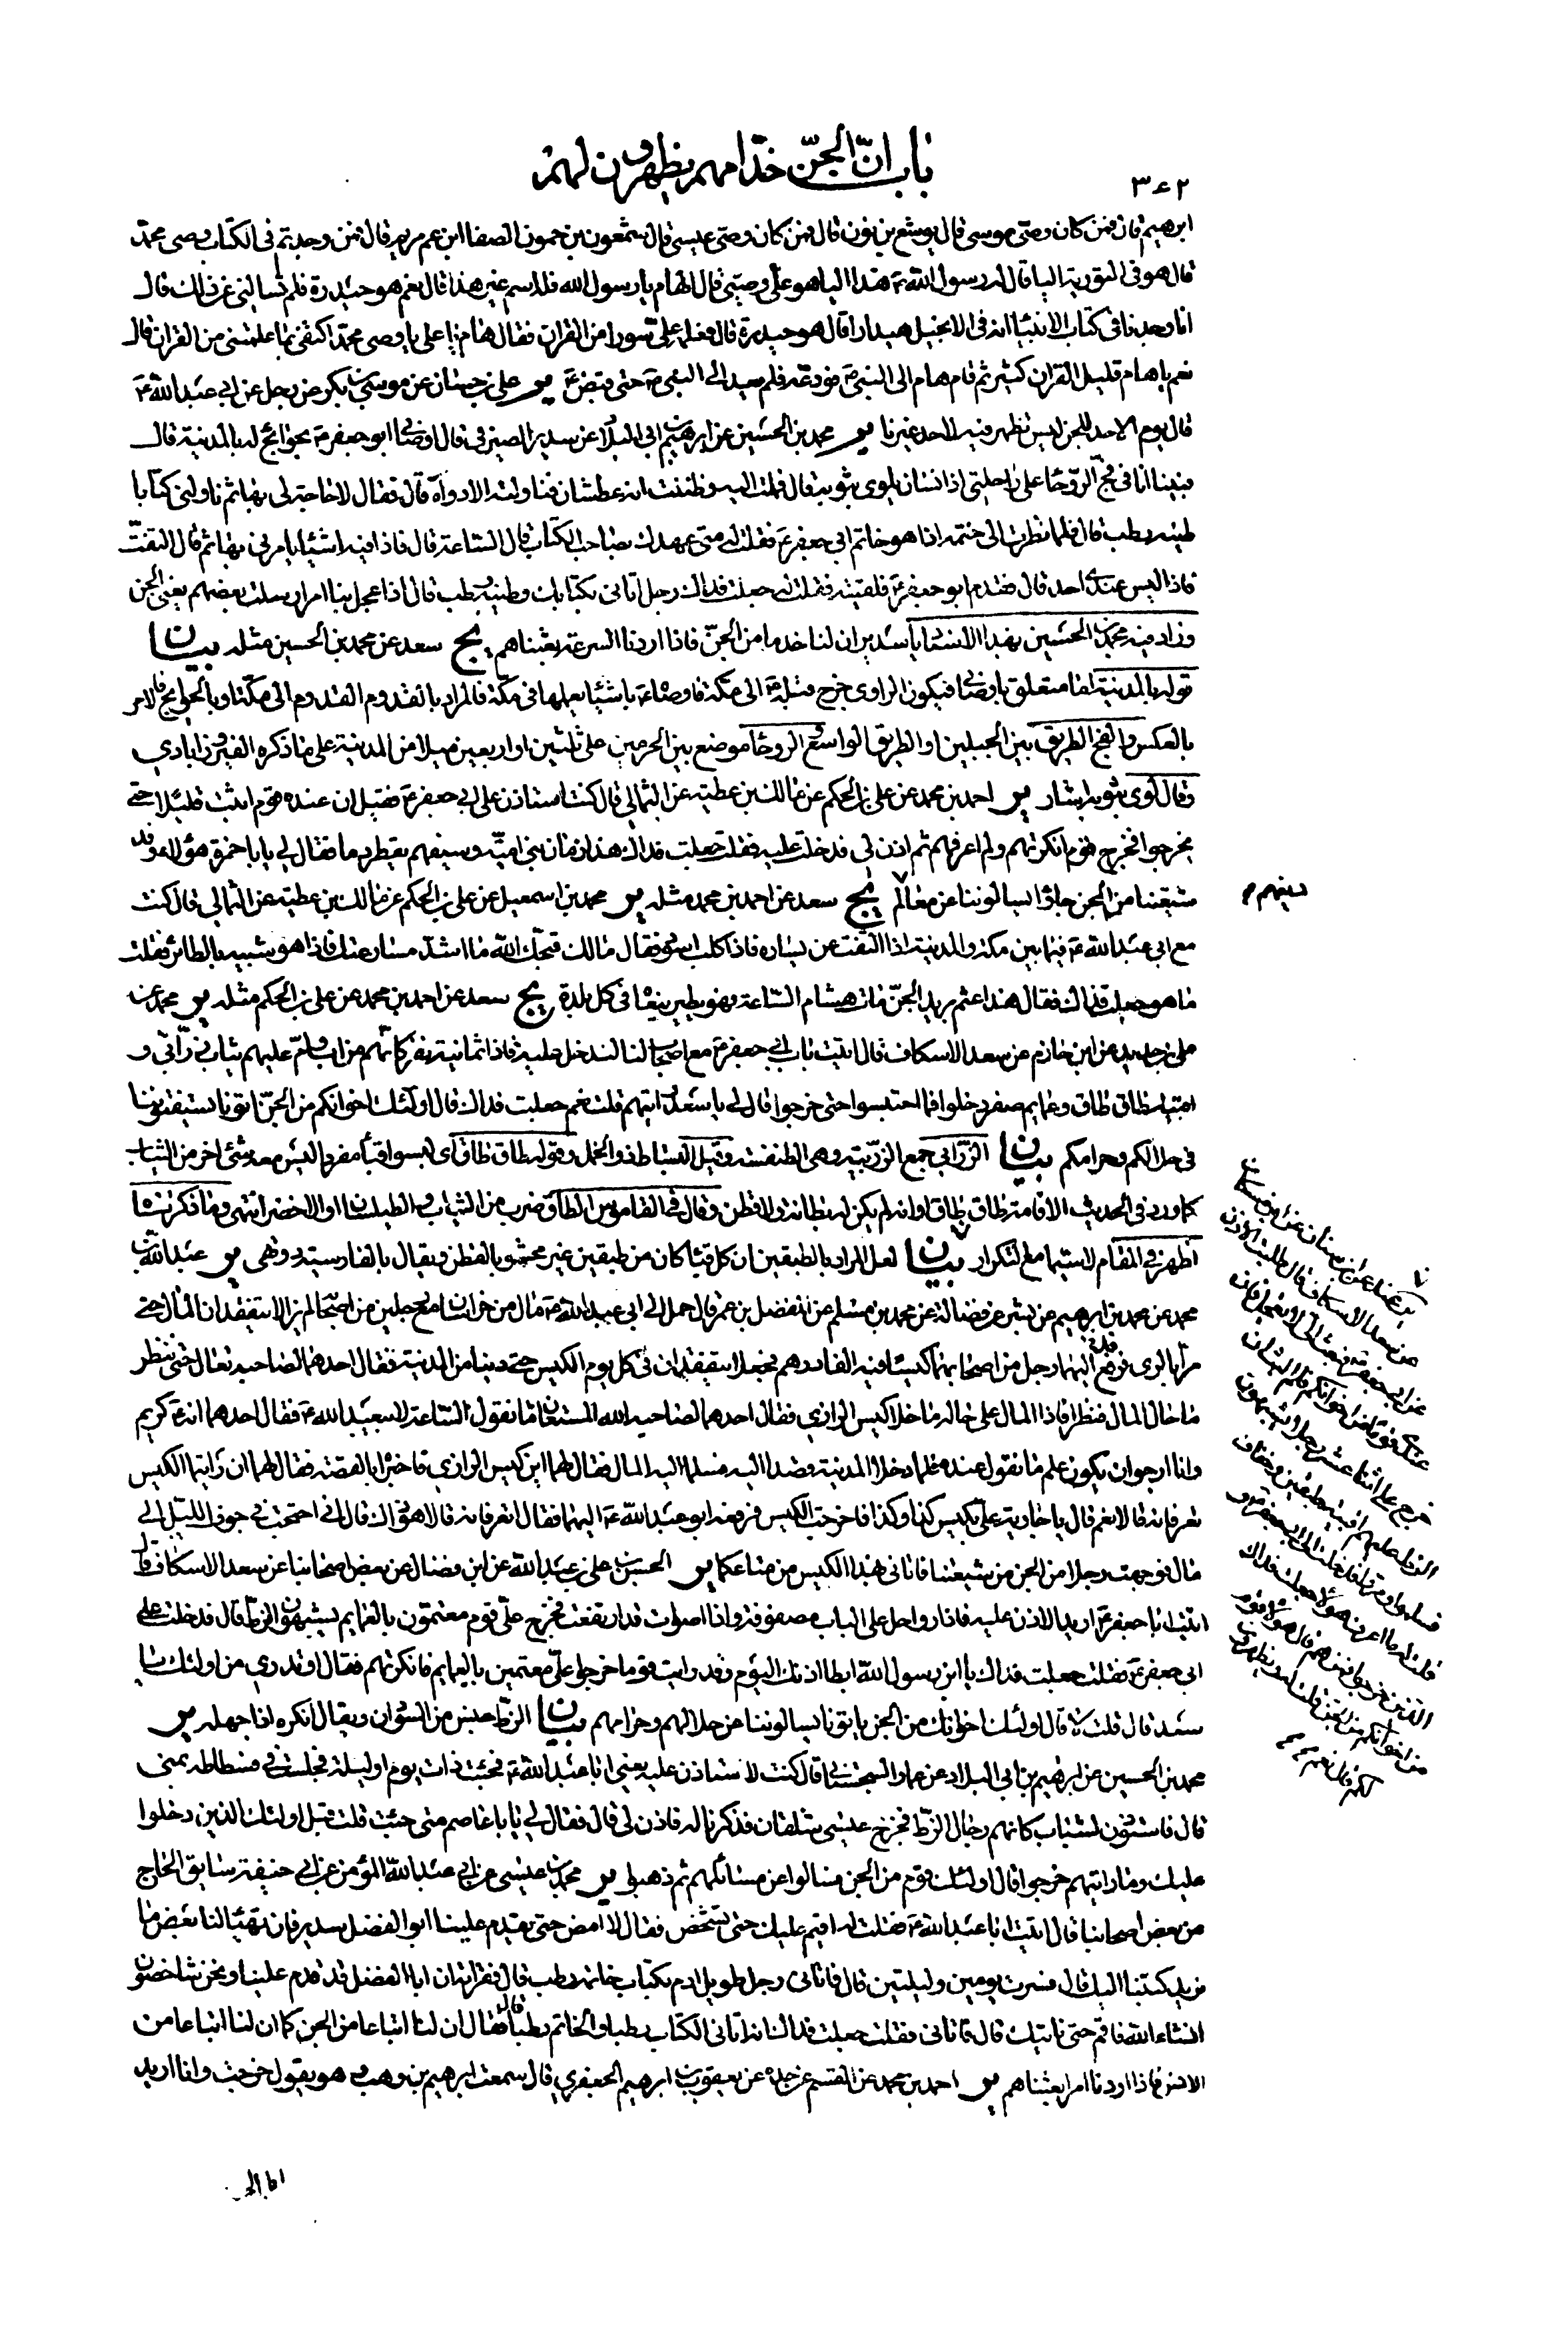 باب انّ الجنّ خدّامهم يظهرون لهم
٣٤٢
ابرهيم قال فمن كان وصى موسى قال يوشع بن نون قال فمن كان وصى عيسى قال شمعون بن حمون الصفا ابن عم مريم قال فمن وجدتم فى الكتاب وصى محمد
قال هو فى التورية اليا قال له رسول الله ص هذا اليا هو علىّ وصيّى قال الهام يا رسول الله فله اسم غير هذا قال نعم هو حيدرة فلم تسالنى عن ذلك قال
انا وجدنا فى كتاب الانبياء انه فى الانجيل هيدارا قال هو حيدرة قال فعلمه علىّ سورا من القران فقال هام يا على يا وصى محمد اكتفى بما علمتنى من القران قال
نعم يا هام قليل القران كثير ثم قام هام الى النبى ص فودّعه فلم يعد الى النبى ص حتى قبض ع ير على بن حسان عن موسى بن بكر عن رجل عن ابى عبد الله ع
قال يوم الاحد للجن ليس تظهر فيه لاحد غيرنا ير محمد بن الحسين عن ابرهيم بن ابى البلاد عن سدير الصيرفى قال اوصانى ابو جعفر ع بحوائج له بالمدينة قال
فبينا انا فى فجّ الروحاء على راحلتى اذا انسان يلوى بثوبه قال فملت اليه وظننت انه عطشان فناولته الاداوة قال فقال لا حاجة لى بها ثم ناولنى كتابا
طينه رطب قال فلما نظرت الى ختمه اذا هو خاتم ابى جعفر ع فقلت له متى عهدك بصاحب الكتاب قال الساعة قال فاذا فيه اشياء يامرنى بها ثم قال التفتّ
فاذا ليس عندى احد قال فقدم ابو جعفر ع فلقيته فقلت له جعلت فداك رجل اتانى بكتابك وطينه رطب قال اذا عجل بنا امر ارسلت بعضهم يعنى الجن
وزاد فيه محمد بن الحسين بهذا الاسناد يا سدير ان لنا خدما من الجنّ فاذا اردنا السرعة بعثناهم يج سعد عن محمد بن الحسين مثله بيان
قوله بالمدينة اما متعلق باوصانى فيكون الراوى خرج قبله ع الى مكة فاوصاه ع باشياء يعملها فى مكة فالمراد بالقدوم القدوم الى مكة او بالحوائج فالامر
بالعكس والفج الطريق بين الجبلين او الطريق الواسع والروحاء موضع بين الحرمين على ثلثين او اربعين ميلا من المدينة على ما ذكره الفيروزابادي
وقال لوى بثوبه اشار ير احمد بن محمد عن على بن الحكم عن مالك بن عطية عن الثمالى قال كنت استاذن على ابى جعفر ع فقيل ان عنده قوم اثبت قليلا حتى
يخرجوا فخرج قوم انكرتهم ولم اعرفهم ثم اذن لى فدخلت عليه فقلت جعلت فداك هذا زمان بنى امية وسيفهم يقطر دما فقال لى يا با حمزة هؤلاء وفد
شيعتنا من الجن جاؤا يسالوننا عن معالم يج سعد عن احمد بن محمد مثله ير محمد بن اسمعيل عن على بن الحكم عن مالك بن عطية عن الثمالى قال كنت
دينهم م
مع ابى عبد الله ع فيما بين مكة والمدينة اذا التفت عن يساره فاذا كلب اسود فقال مالك قبحك الله ما اشد مسارعتك فاذا هو شبيه بالطائر فقلت
ما هو جعلت فداك فقال هذا عثم بريد الجنّ مات هشام الساعة وهو يطير ينعاه فى كل بلدة يج سعد عن احمد بن محمد عن على بن الحكم مثله ير محمد عن
على بن حديد عن ابن حازم عن سعد الاسكاف قال اتيت باب ابى جعفر ع مع اصحاب لنا لندخل عليه فاذا ثمانية نفر كانهم من اب وامّ عليهم ثياب زرابىّ و
اقبية طاق طاق وعمايم صفر دخلوا فما احتبسوا حتى خرجوا قال لى يا سعد رايتهم قلت نعم جعلت فداك قال اولئك اخوانكم من الجنّ اتونا يستفتوننا
فى حلالكم وحرامكم بيان الزرابى جمع الزربية وهى الطنفسة وقيل البساط ذو الخمل وقوله طاق طاق اى لبسوا قباء مفردا ليس معه شئ اخر من الثياب
كما ورد فى الحديث الاقامة طاق طاق او انه لم يكن له بطانة ولا قطن وقال فى القاموس الطاق ضرب من الثياب والطيلسان او الاخضر انتهى وما ذكرناه
اظهر فى المقام لاسيما مع التكرار بيان لعل المراد بالطبقين ان كل قباء كان من طبقين غير محشو بالقطن ويقال بالفارسية دو تهى ير عبد الله بن
محمد عن محمد بن ابرهيم عن بشير عن فضالة عن محمد بن مسلم عن المفضل بن عمر قال حمل الى ابى عبد الله ع مال من خراسان مع رجلين من اصحابه لم يزالا يتفقدان المال حتى
مرّا بالرى فرفع اليهما رجل من اصحابهما كيسا فيه الفا درهم فجعلا يتفقدان فى كل يوم الكيس حتى دنيا من المدينة فقال احدهما لصاحبه تعال حتى ننظر
ما حال المال فنظرا فاذا المال على حاله ما خلا كيس الرازى فقال احدهما لصاحبه الله المستعان ما نقول الساعة لابى عبد الله ع فقال احدهما انه ع كريم
وانا ارجو ان يكون علم ما نقول عنده فلما دخلا المدينة قصدا اليه فسلما اليه المال فقال لهما اين كيس الرازى فاخبراه بالقصة فقال لهما ان رايتما الكيس
تعرفانه قالا نعم قال يا جارية علىّ بكيس كذا وكذا فاخرجت الكيس فرفعه ابو عبد الله ع اليهما فقال اتعرفانه قالا هو ذاك قال انى احتجت فى جوف الليل الى
مال فوجهت رجلا من الجن من شيعتنا فاتانى بهذا الكيس من متاعكما ير الحسن بن على بن عبد الله عن ابن فضال عن بعض اصحابنا عن سعد الاسكاف قال
اتيت ابا جعفر ع اريد الاذن عليه فاذا رواحل على الباب مصفوفة واذا اصوات قد ارتفعت فخرج علىّ قوم معتمون بالعمايم يشبهون الزط قال فدخلت على
ابى جعفر ع فقلت جعلت فداك يا ابن رسول الله ابطا اذنك اليوم وقد رايت قوما خرجوا علىّ معتمين بالعمايم فانكرتهم فقال اوتدرى من اولئك يا
سعد قال قلت لا قال اولئك اخوانك من الجن ياتونا يسالوننا عن حلالهم وحرامهم بيان الزطّ جنس من السودان ويقال انكره اذا جهله ير
محمد بن الحسين عن ابرهيم بن ابى البلاد عن عمار السجستانى قال كنت لا استاذن عليه يعنى ابا عبد الله ع فجئت ذات يوم او ليلة فجلست فى فسطاطه بمنى
قال فاستؤذن لشباب كانهم رجال الزطّ فخرج عيسى شلقان فذكرنا له فاذن لى قال فقال لى يا با عاصم متى جئت قلت قبل اولئك الذين دخلوا
عليك وما رايتهم خرجوا قال اولئك قوم من الجن فسالوا عن مسائلهم ثم ذهبوا ير محمد بن عيسى عن ابى عبد الله المؤمن عن ابى حنيفة سايق الحاج
عن بعض اصحابنا قال اتيت ابا عبد الله ع فقلت له اقيم عليك حتى تشخص فقال لا امض حتى يقدم علينا ابو الفضل سدير فان تهيّا لنا بعض ما
نريد كتبنا اليك قال فسرت يومين وليلتين قال فاتانى رجل طويل ادم بكتاب خاتمه رطب قال فقراته ان ابا الفضل قد قدم علينا ونحن شاخصون
انشاء الله فاقم حتى ناتيك قال فاتانى فقلت جعلت فداك انه اتانى الكتاب رطبا والخاتم رطبا قال فقال ان لنا اتباعا من الجن كما ان لنا اتباعا من
الانس فاذا اردنا امرا بعثناهم ير احمد بن محمد عن القسم عن جده عن يعقوب بن ابرهيم الجعفرى قال سمعت ابرهيم بن وهب وهو يقول خرجت وانا اريد
عن سعد الاسكاف قال طلبت الاذن
عندى قوما من اخوانكم فلم البث ان
خرج علىّ اثنا عشر رجلا يشبهون
الزط عليهم اقبية طبقين وخفاف
فسلموا ومروا فدخلت الى ابى جعفر ع و
قلت له ما اعرف هؤلاء جعلت فداك
الذين خرجوا فمن هم قال هؤلاء قوم
من اخوانكم من الجن قلت له ويظهرون
لكم قال نعم